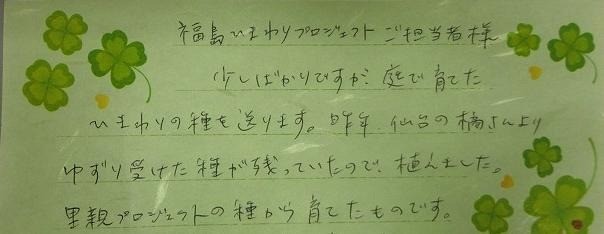 福島ひまわりプロジェクト ご担当者様
少しばかりですが、庭で育てた
ひまわりの種を送ります。昨年、仙台の橘さんより
ゆずり受けた種が残っていたので、植えました。
里親プロジェクトの種から育てたものです。